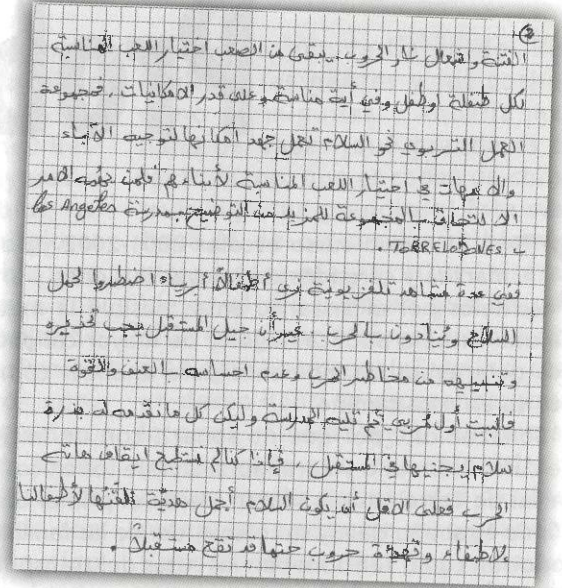 ②
الفتنة واشعال نار الحروب.. يبقى من الصعب اختيار اللعب المناسبة
لكل طفلة أو طفل وفي أية مناسبة وعلى قدر الامكانيات، فمجموعة
العمل التربوي نحو السلام تعمل جهد امكانها لتوجيه الآباء
والأمهات في اختيار اللعب المناسبة لأبناءهم فلمن يهمه الامر
الالتحاق بالمجموعة للمزيد من التوضيح بمدرسة Los Angeles
ب TORRELODONES.
ففي عدة مشاهد تلفزيونية نرى أطفالاً أبرياء اضطروا لحمل
السلاح وينادون بالحرب. غير أن جيل المستقبل يجب تحذيره
وتنبيهه من مخاطر الحرب وعدم احساسه بالعنف والقوة
فالبيت أول مربي ثم تليه المدرسة وليكن كل ما نقدمه له بذرة
سلام يجنيها في المستقبل. فإذا كنا لم نستطيع ايقاف هاته
الحرب فعلى الاقل أن يكون السلام أجمل هدية نلقنها لأطفالنا
لاطفاء وتهدئة حروب حتما قد تقع مستقبلاً.